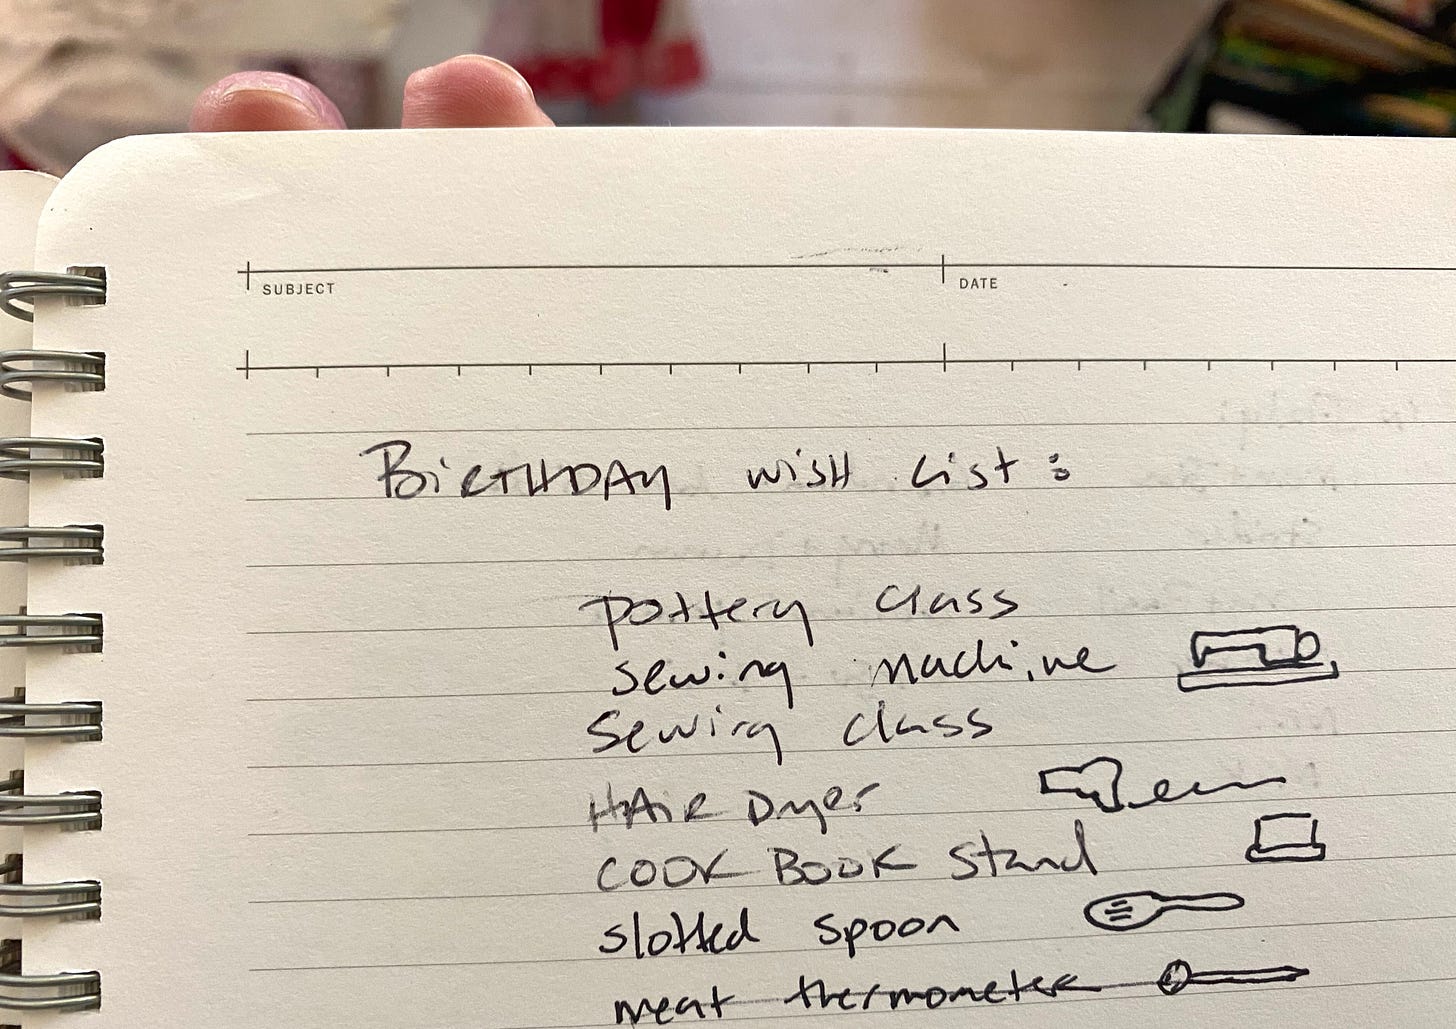 SUBJECT DATE
BIRTHDAY WISH LIST:
pottery class
sewing machine
Sewing class
HAIR Dryer
COOK BOOK Stand
slotted spoon
meat thermometer